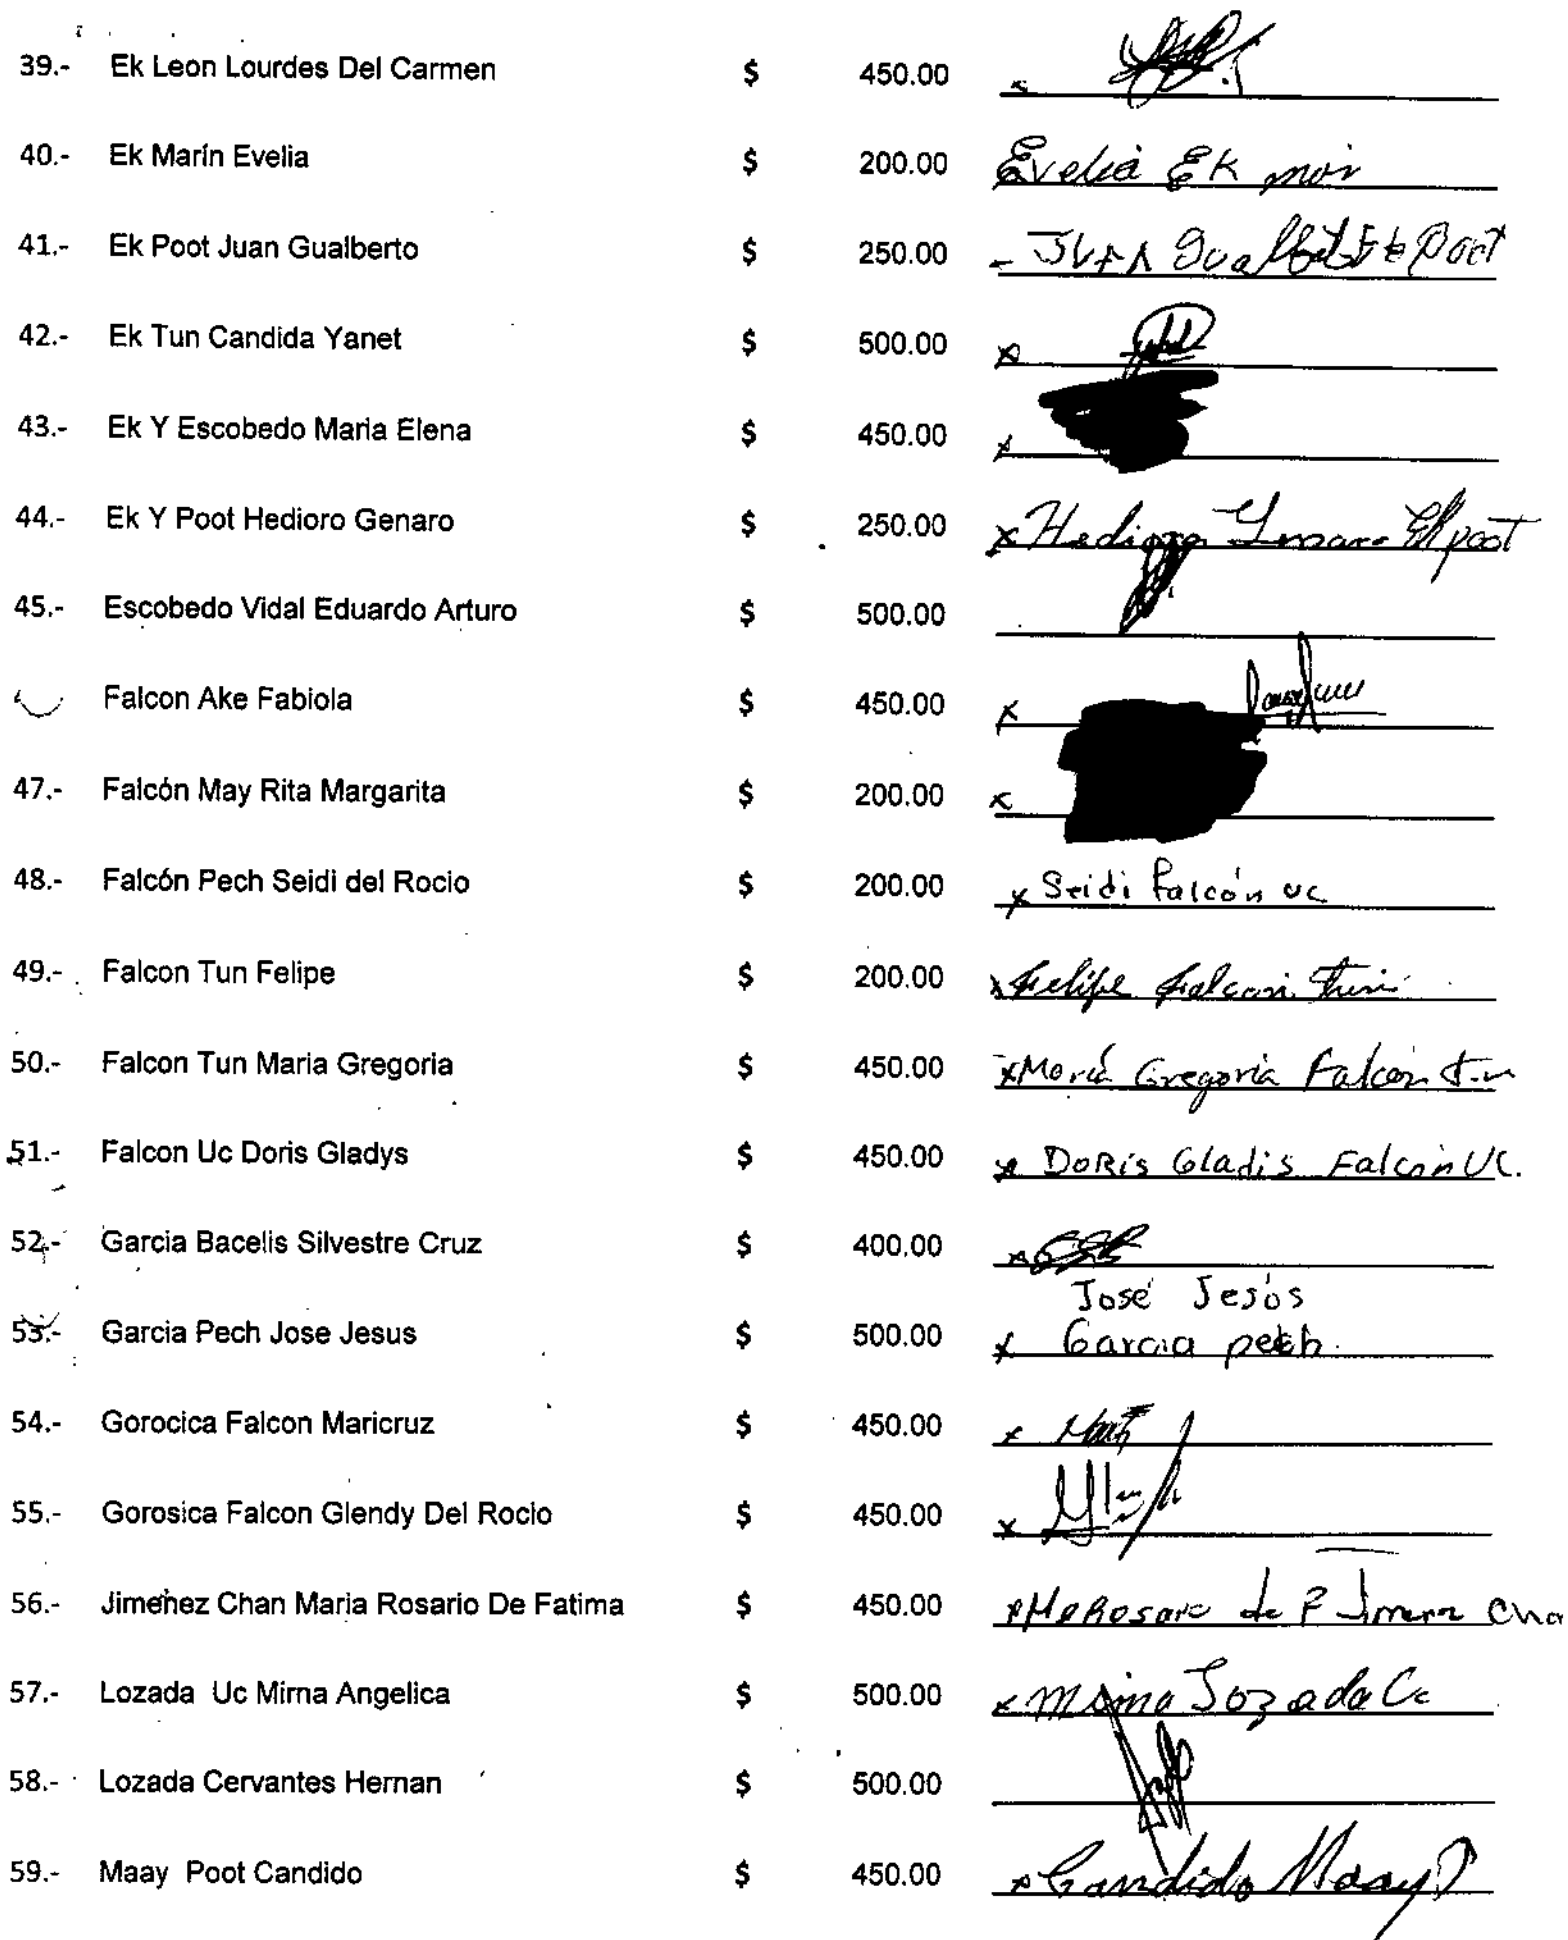 39.- Ek Leon Lourdes Del Carmen $ 450.00
40.- Ek Marín Evelia $ 200.00 Evelia Ek
41.- Ek Poot Juan Gualberto $ 250.00 Poot
42.- Ek Tun Candida Yanet $ 500.00
43.- Ek Y Escobedo Maria Elena $ 450.00
44.- Ek Y Poot Hedioro Genaro $ 250.00 x Hedioro Ek poot
45.- Escobedo Vidal Eduardo Arturo $ 500.00
Falcon Ake Fabiola $ 450.00 x
47.- Falcón May Rita Margarita $ 200.00 x
48.- Falcón Pech Seidi del Rocio $ 200.00 x Seidi Falcón uc
49.- Falcon Tun Felipe $ 200.00 x Felipe Falcon
50.- Falcon Tun Maria Gregoria $ 450.00 x María Gregoria Falcón
51.- Falcon Uc Doris Gladys $ 450.00 x DoRis Gladis Falcón UC.
52.- Garcia Bacelis Silvestre Cruz $ 400.00 x
José Jesús
53.- Garcia Pech Jose Jesus $ 500.00 x Garcia pech.
54.- Gorocica Falcon Maricruz $ 450.00 x
55.- Gorosica Falcon Glendy Del Rocio $ 450.00 x
56.- Jimenez Chan Maria Rosario De Fatima $ 450.00 x Ma Rosario de F Cha
57.- Lozada Uc Mirna Angelica $ 500.00 x Lozada
58.- Lozada Cervantes Hernan $ 500.00
59.- Maay Poot Candido $ 450.00 x Candido Maay P